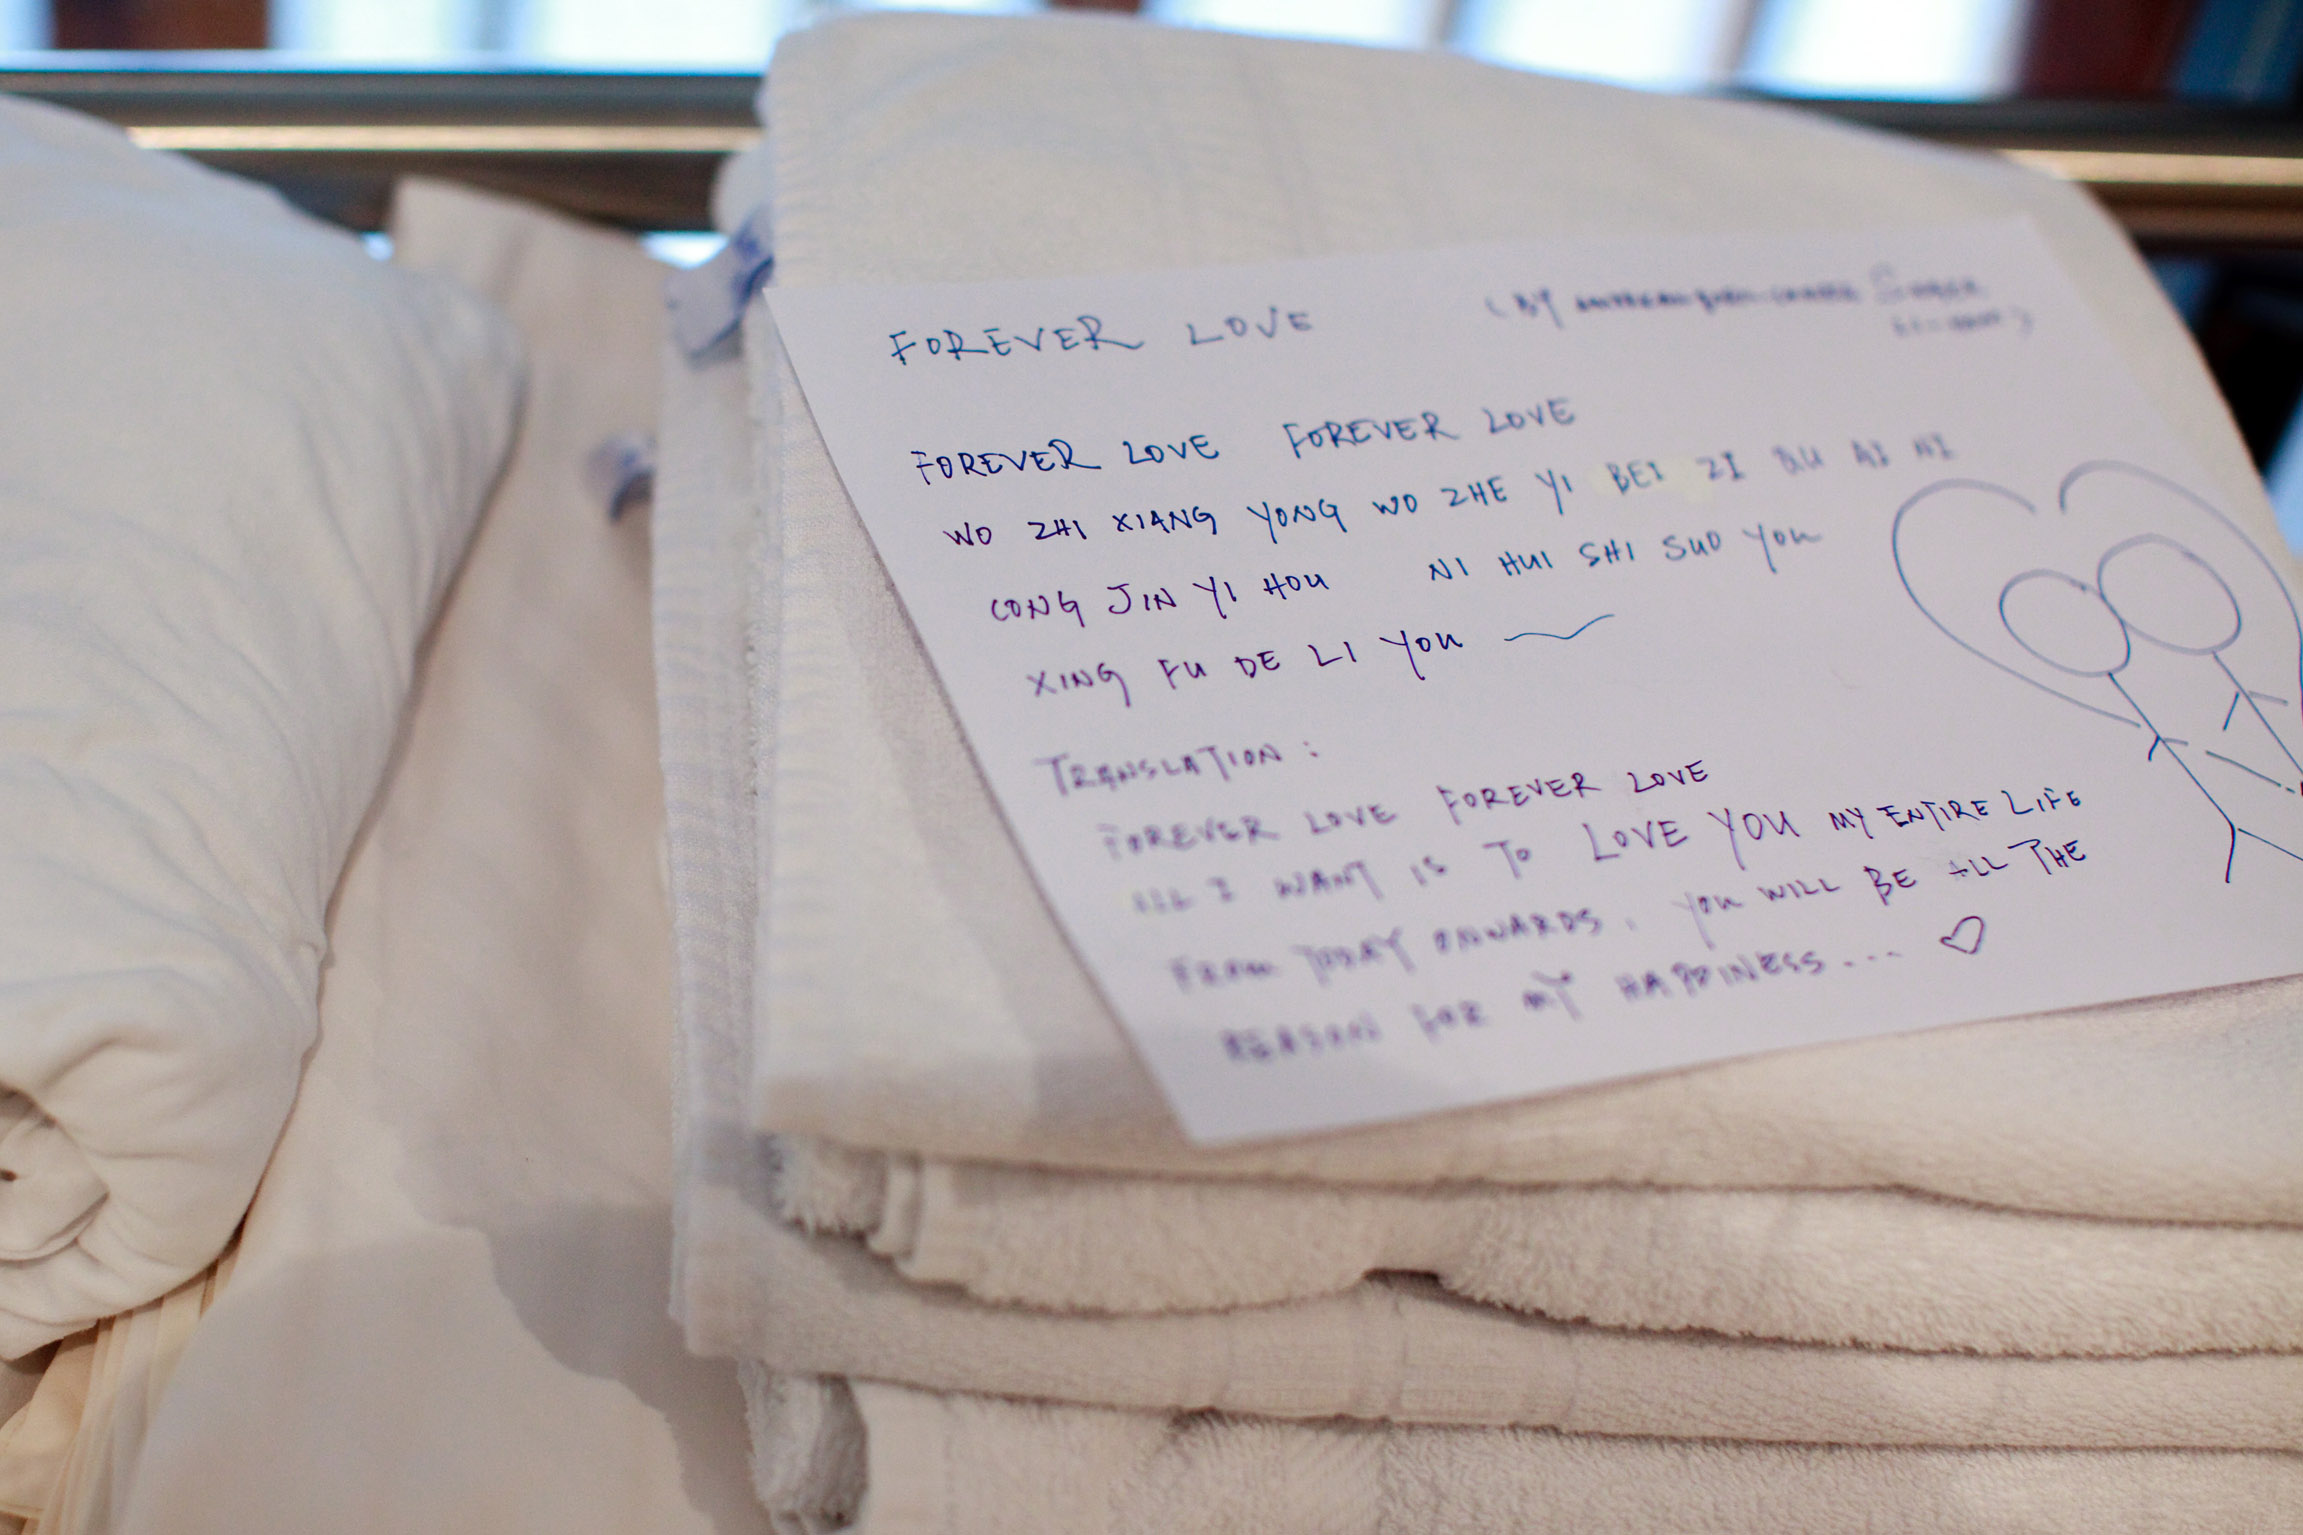 FOREVER LOVE (BY
FOREVER LOVE FOREVER LOVE
WO ZHI XIANG YONG WO ZHE YI BEI ZI QU AI NI
CONG JIN YI HOU NI HUI SHI SUO YOU
XING FU DE LI YOU
TRANSLATION :
FOREVER LOVE FOREVER LOVE
ALL I WANT IS TO LOVE YOU MY ENTIRE LIFE
FROM TODAY ONWARDS, YOU WILL BE ALL THE
REASON FOR MY HAPPINESS...